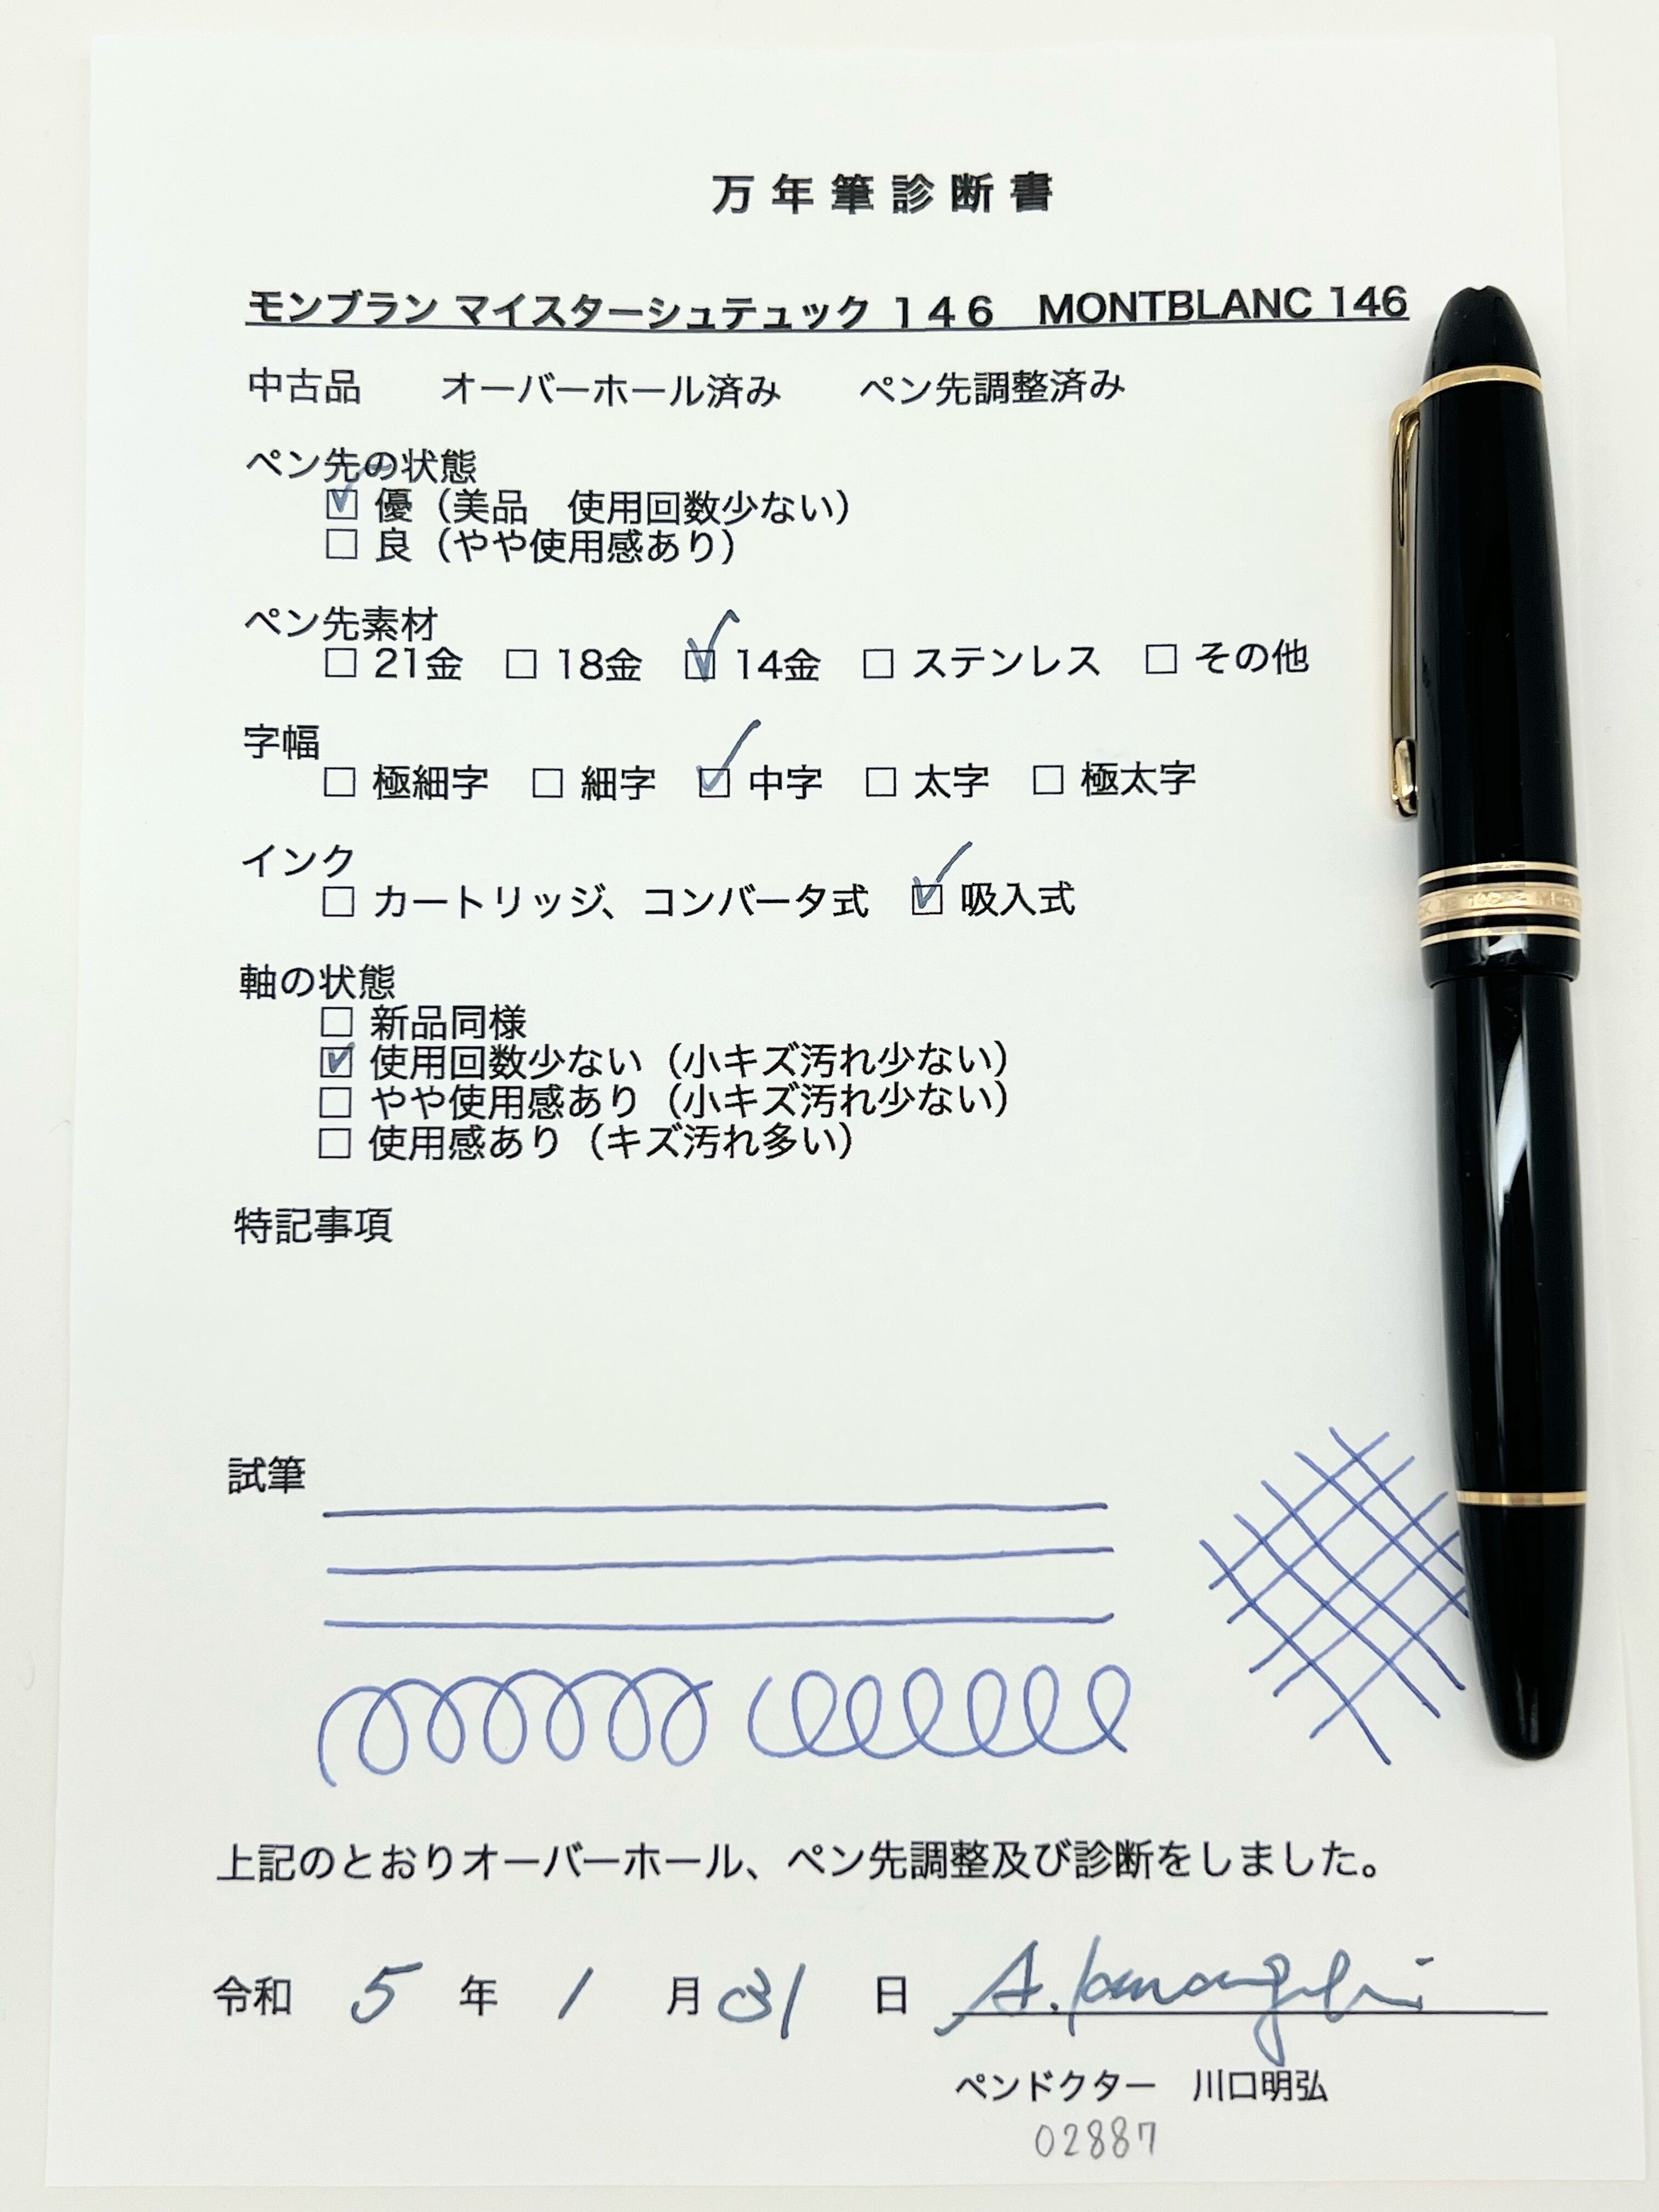 万年筆診断書
モンブラン マイスターシュテュック １４６　MONTBLANC 146
中古品　　オーバーホール済み　　ペン先調整済み
ペン先の状態
☑ 優（美品　使用回数少ない）
☐ 良（やや使用感あり）
ペン先素材
☐ 21金　☐ 18金　☑ 14金　☐ ステンレス　☐ その他
字幅
☐ 極細字　☐ 細字　☑ 中字　☐ 太字　☐ 極太字
インク
☐ カートリッジ、コンバータ式　☑ 吸入式
軸の状態
☐ 新品同様
☑ 使用回数少ない（小キズ汚れ少ない）
☐ やや使用感あり（小キズ汚れ少ない）
☐ 使用感あり（キズ汚れ多い）
特記事項
試筆
上記のとおりオーバーホール、ペン先調整及び診断をしました。
令和　5　年　1　月　31　日
ペンドクター　川口明弘
02887